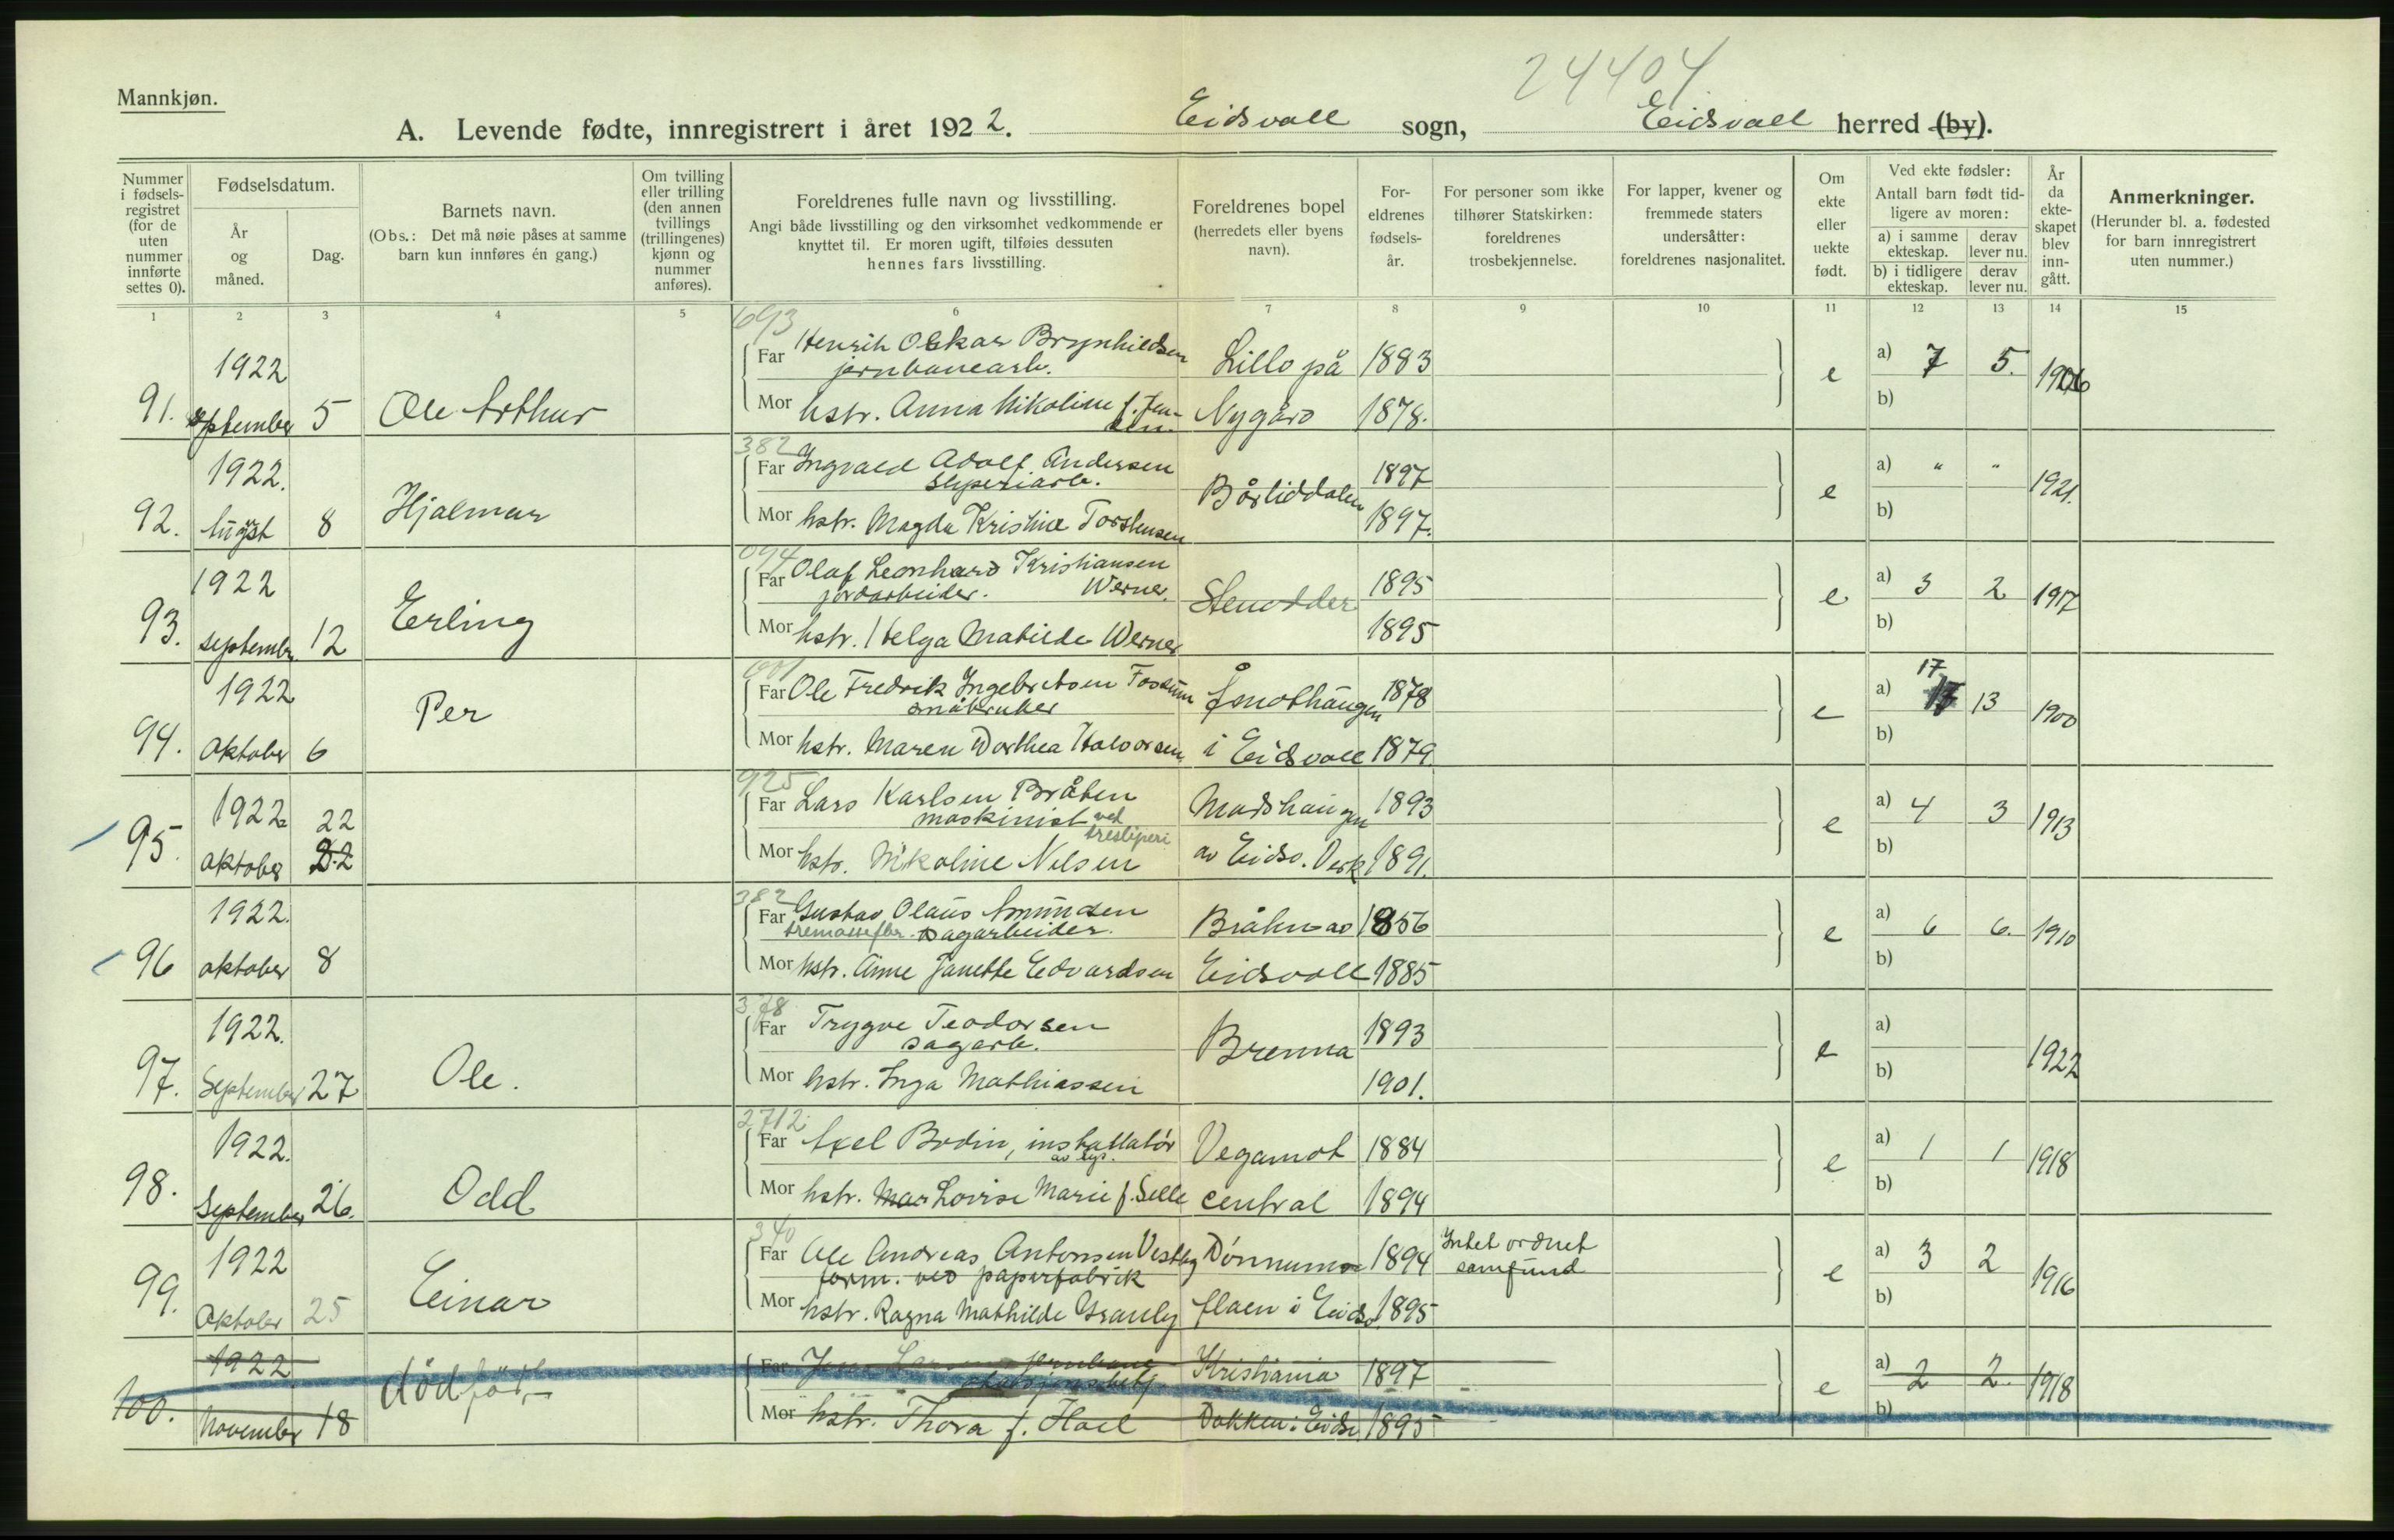 24404
Mannkjøn.
A. Levende fødte, innregistrert i året 1922. Eidsvoll sogn, Eidsvoll herred (by).
Nummer i fødsels-registret (for de uten nummer innførte settes 0).
Fødselsdatum.
År og måned.
Dag.
Barnets navn.
(Obs.: Det må nøie påses at samme barn kun innføres én gang.)
Om tvilling eller trilling (den annen tvillings (trillingenes) kjønn og nummer anføres).
Foreldrenes fulle navn og livsstilling.
Angi både livsstilling og den virksomhet vedkommende er knyttet til. Er moren ugift, tilføies dessuten hennes fars livsstilling.
Foreldrenes bopel (herredets eller byens navn).
For-eldrenes fødsels-år.
For personer som ikke tilhører Statskirken: foreldrenes trosbekjennelse.
For lapper, kvener og fremmede staters undersåtter: foreldrenes nasjonalitet.
Om ekte eller uekte født.
Ved ekte fødsler:
Antall barn født tid-ligere av moren:
a) i samme ekteskap. derav lever nu.
b) i tidligere ekteskap. derav lever nu.
År da ekte-skapet blev inn-gått.
Anmerkninger.
(Herunder bl. a. fødested for barn innregistrert uten nummer.)
1 2 3 4 5 6 7 8 9 10 11 12 13 14 15
693
1922 Far Henrik Oskar Brynhildsen Lillo på 1883 e a) 7 5. 1906
jernbanearb.
91. september 5 Ole Arthur Mor hstr. Anna Nikoline f. Jen- Nygård 1878. b)
sen.
382
1922. Far Ingvald Adolf Andersen Bårliddalen 1897 e a) " " 1921.
sliperiarb.
92. August 8 Hjalmar Mor hstr. Magda Kristine Torstensen 1897. b)
094
1922 Far Olaf Leonhard Kristiansen 1895 e a) 3 2 1917
jordarbeider. Werner.
93. september 12 Erling Mor hstr. Helga Matilde Werner 1895 b)
001
1922 Far Ole Fredrik Ingebretsen Fossum 1878 e a) 17 13 1900
småbruker
94. Oktober 6 Per Mor hstr. Maren Dorthea Halvorsen i Eidsvoll 1879. b)
925
1922 22 Far Lars Karlsen Bråten Madshaugen 1893 e a) 4 3 1913
maskinist ved tresliperi
95. Oktober 22 Mor hstr. Nikoline Nilsen av Eidsv. Verk 1891. b)
382
1922. Far Gustav Olaus Amundsen Bråten av 1856 e a) 6 6. 1910
tremassefbr. sagarbeider.
96 oktober 8 Mor hstr. Anne Janette Edvardsen Eidsvoll 1885 b)
378
1922. Far Trygve Teodorsen Brenna 1893 e a) 1922
sagarb.
97. September 27 Ole. Mor hstr. Inga Mathiassen 1901. b)
2712
1922. Far Axel Bodin, installatør Vegamot 1884 e a) 1 1 1918
av lys.
98. September 26. Odd Mor hstr. Mar Lovise Marie f. Selle central 1894 b)
340
1922 Far Ole Andreas Antonsen Vestby Dønnum 1894 Intet ordnet samfund e a) 3 2 1916
form. ved papirfabrik
99. Oktober 25 Einar Mor hstr. Ragna Mathilde Granly flaen i Eidsv. 1895 b)
1922 dødfødt Far Kristiania 1897 e a) 2 2. 1918
100. November 18 Mor hstr. Thora f. Hoel Dokken i Eidsv. 1895 b)